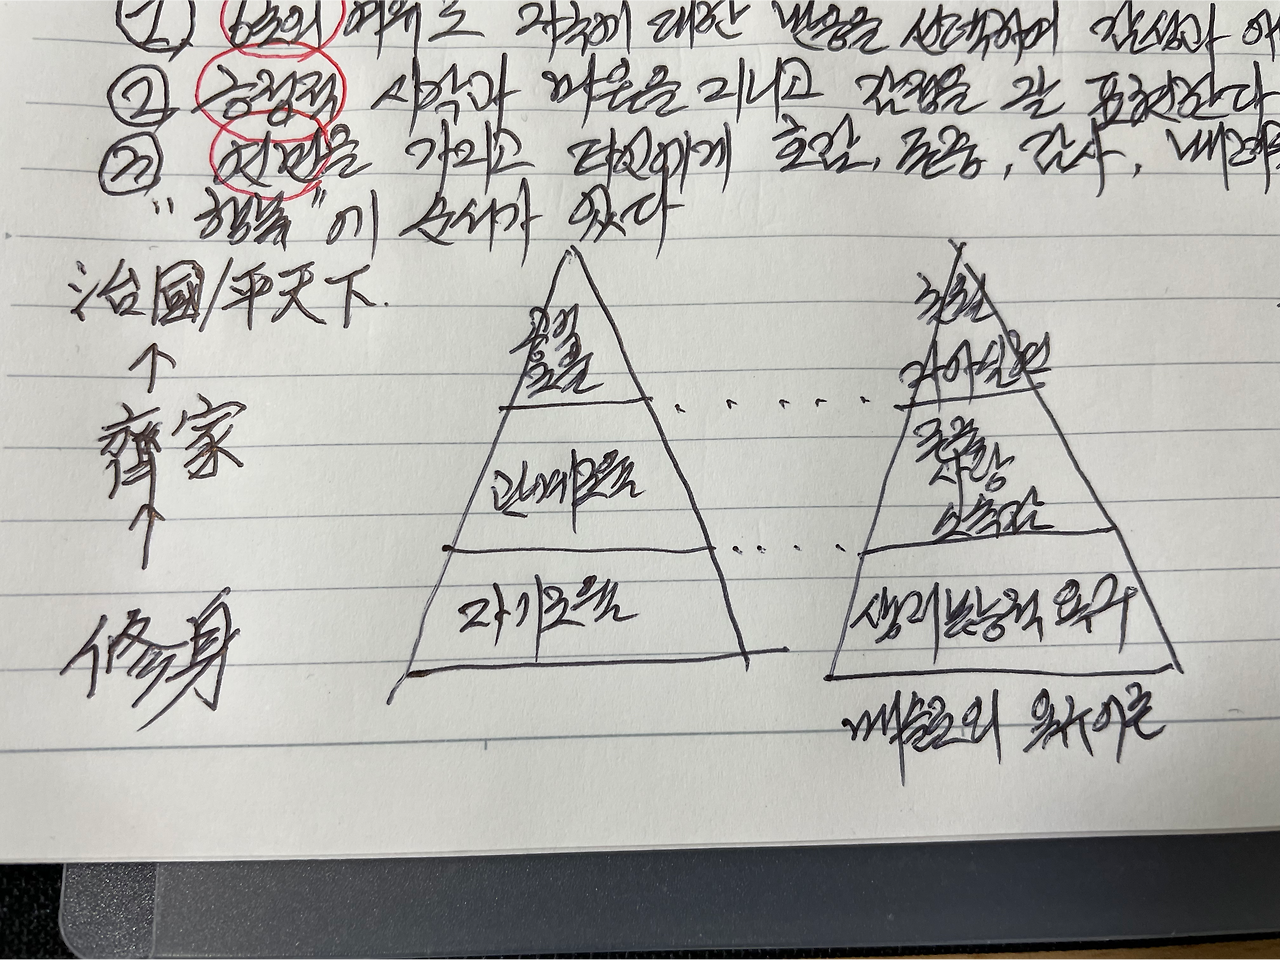 ① 6초의 여유로 자극에 대한 반응을 선택하여 감성과
② 긍정적 시각과 마음을 지니고 감정을 잘 표현한다
③ 연민을 가지고 타인에게 호감, 존중, 감사,
"행복"에 순서가 있다
治國/平天下.
↑
齊家
↑
修身
조율
관계조율
자기조율
초월
자아실현
존중
사랑
소속감
생리본능적 욕구
매슬로의 욕구이론